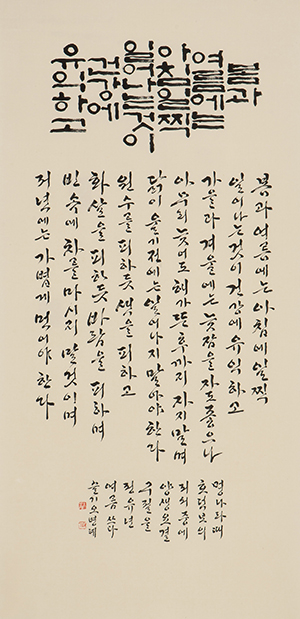 봄과
여름에는
아침일찍
일어나는것이
건강에
유익하고
봄과 여름에는 아침에 일찍
일어나는 것이 건강에 유익하고
가을과 겨울에는 늦잠을 자도 좋으나
아무리 늦어도 해가 뜬 후까지 자지 말며
닭이 울기전에는 일어나지 말아야 한다
원수를 피하듯 색을 피하고
화살을 피하듯 바람을 피하며
빈 속에 차를 마시지 말 것이며
저녁에는 가볍게 먹어야 한다
명나라 때
양생요결
구절을
여름 쓰다